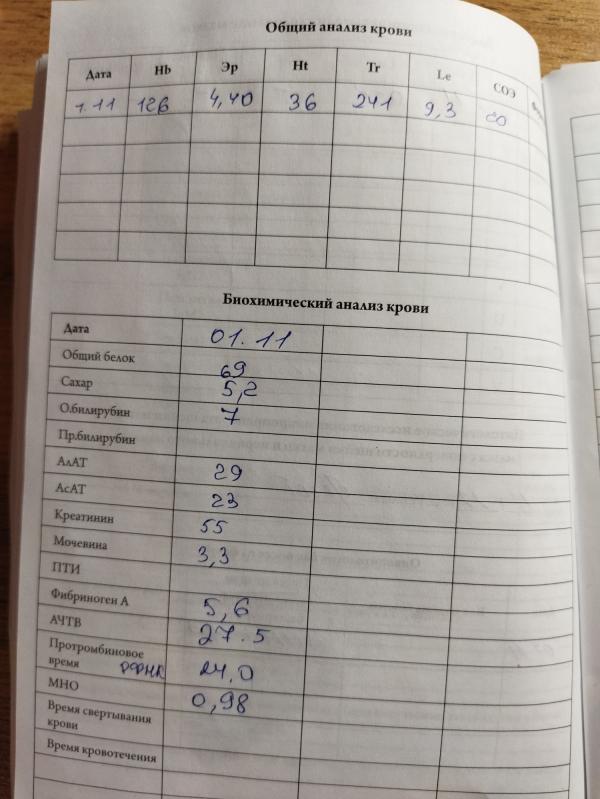 Общий анализ крови
Дата Hb Эр Ht Tr Le СОЭ
1.11 126 4,40 36 241 9,3
Биохимический анализ крови
Дата 01.11
Общий белок 69
Сахар 5,2
О.билирубин 7
Пр.билирубин
АлАТ 29
АсАТ 23
Креатинин 55
Мочевина 3,3
ПТИ
Фибриноген А 5,6
АЧТВ 27.5
Протромбиновое
время РФМК 24,0
МНО 0,98
Время свертывания
крови
Время кровотечения